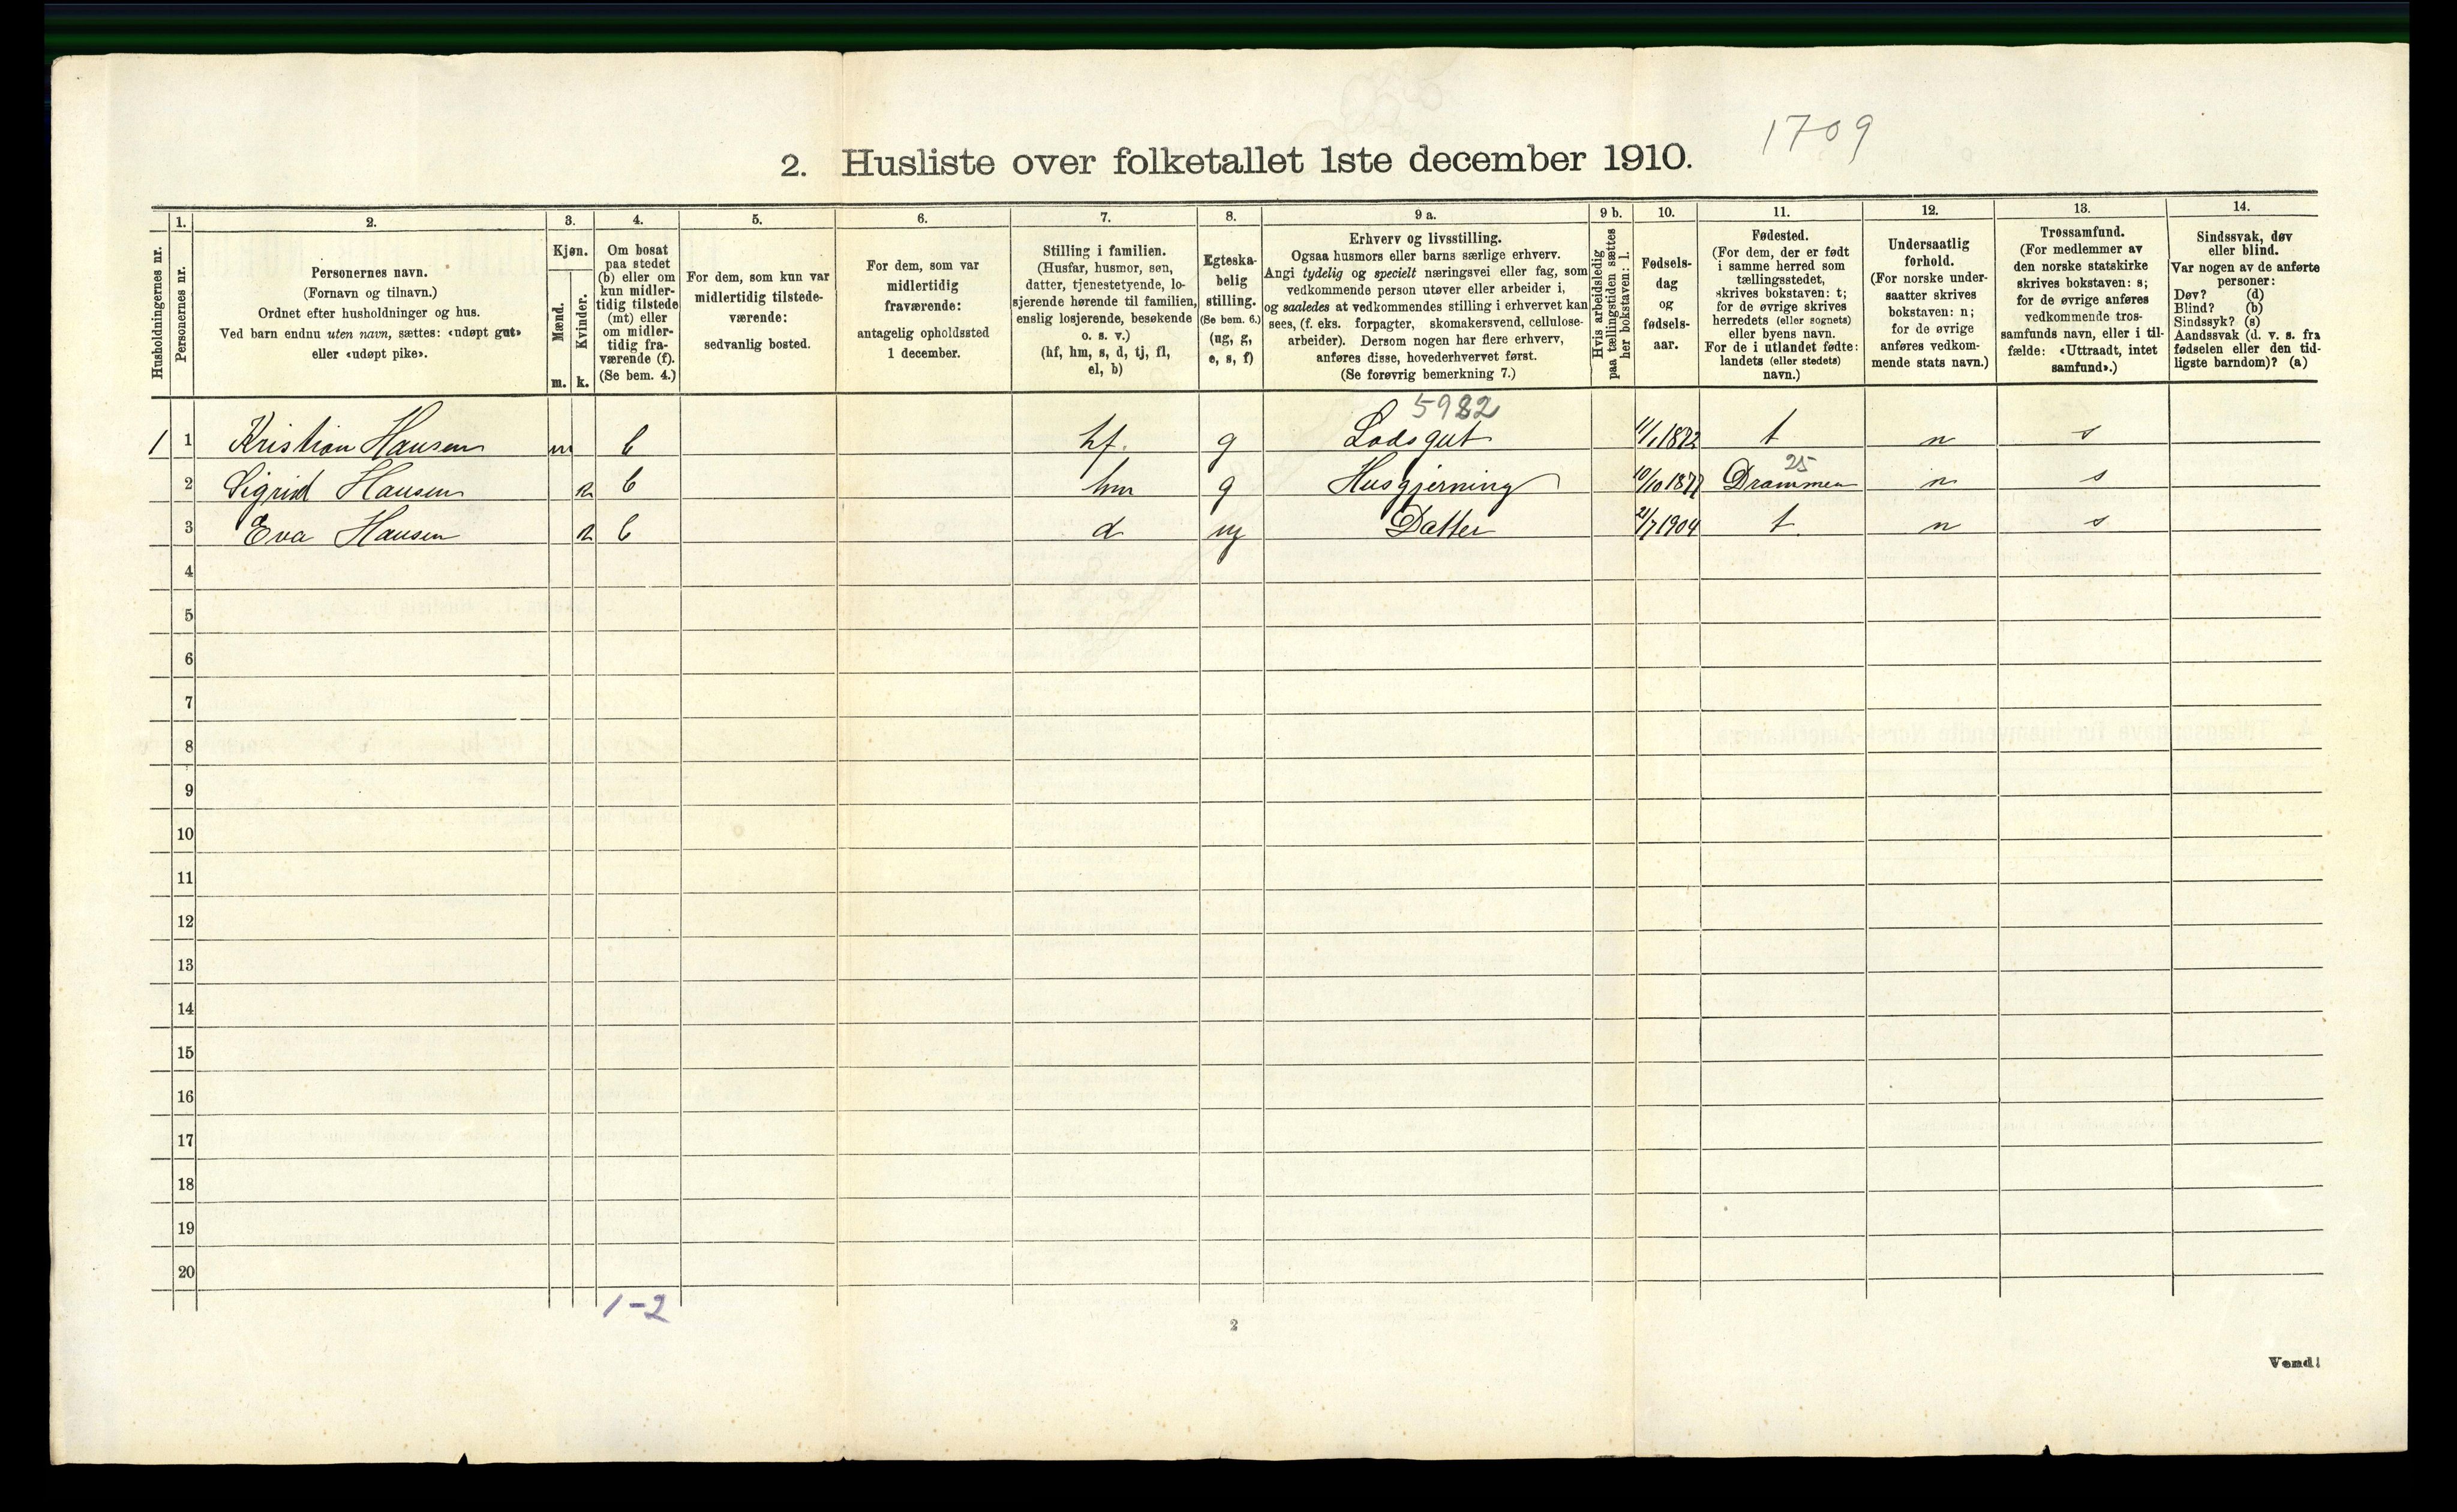 1709
2. Husliste over folketallet 1ste december 1910.
1. 2. 3. 4. 5. 6. 7. 8. 9 a. 9 b. 10. 11. 12. 13. 14.
Husholdningernes nr.
Personernes nr.
Personernes navn.
(Fornavn og tilnavn.)
Ordnet efter husholdninger og hus.
Ved barn endnu uten navn, sættes: «udøpt gut»
eller «udøpt pike».
Kjøn.
Mænd.
Kvinder.
m. k.
Om bosat
paa stedet
(b) eller om
kun midler-
tidig tilstede
(mt) eller
om midler-
tidig fra-
værende (f).
(Se bem. 4.)
For dem, som kun var
midlertidig tilstede-
værende:
sedvanlig bosted.
For dem, som var
midlertidig
fraværende:
antagelig opholdssted
1 december.
Stilling i familien.
(Husfar, husmor, søn,
datter, tjenestetyende, lo-
sjerende hørende til familien,
enslig losjerende, besøkende
o. s. v.)
(hf, hm, s, d, tj, fl,
el, b)
Egteska-
belig
stilling.
(Se bem. 6.)
(ug, g,
e, s, f)
Erhverv og livsstilling.
Ogsaa husmors eller barns særlige erhverv.
Angi tydelig og specielt næringsvei eller fag, som
vedkommende person utøver eller arbeider i,
og saaledes at vedkommendes stilling i erhvervet kan
sees, (f. eks. forpagter, skomakersvend, cellulose-
arbeider). Dersom nogen har flere erhverv,
anføres disse, hovederhvervet først.
(Se forøvrig bemerkning 7.)
Hvis arbeidsledig
paa tællingstiden sættes
her bokstaven: l.
Fødsels-
dag
og
fødsels-
aar.
Fødested.
(For dem, der er født
i samme herred som
tællingsstedet,
skrives bokstaven: t;
for de øvrige skrives
herredets (eller sognets)
eller byens navn.
For de i utlandet fødte:
landets (eller stedets)
navn.)
Undersaatlig
forhold.
(For norske under-
saatter skrives
bokstaven: n;
for de øvrige
anføres vedkom-
mende stats navn.)
Trossamfund.
(For medlemmer av
den norske statskirke
skrives bokstaven: s;
for de øvrige anføres
vedkommende tros-
samfunds navn, eller i til-
fælde: «Uttraadt, intet
samfund».)
Sindssvak, døv
eller blind.
Var nogen av de anførte
personer:
Døv? (d)
Blind? (b)
Sindssyk? (s)
Aandssvak (d. v. s. fra
fødselen eller den tid-
ligste barndom)? (a)
5982
1 1 Kristian Hansen m b hf. g Lodsgut t n s
25
2 Sigrid Hansen k b hm g Husgjerning Drammen n s
3 Eva Hansen k b d ug Datter 21/7 1904 t. n s
4
5
6
7
8
9
10
11
12
13
14
15
16
17
18
19
20
1-2
2
Vend!